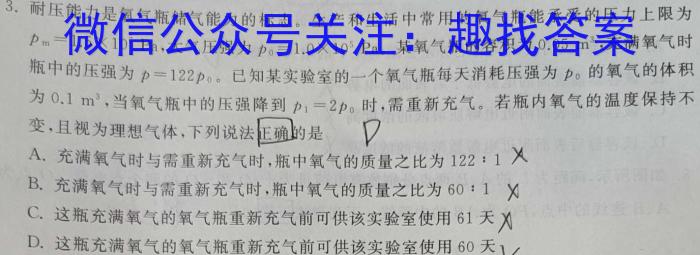 3. 耐压能力是氧气瓶储气能力的标志。生产和生活中常用的氧气瓶能承受的压力上限为
微信公众号关注：趣找答案
瓶中的压强为 p=122p₀。已知某实验室的一个氧气瓶每天消耗压强为 p₀ 的氧气的体积
为 0.1 m³,当氧气瓶中的压强降到 p₁=2p₀ 时,需重新充气。若瓶内氧气的温度保持不
变,且视为理想气体,下列说法正确的是 D
A. 充满氧气时与需重新充气时,瓶中氧气的质量之比为 122∶1 X
B. 充满氧气时与需重新充气时,瓶中氧气的质量之比为 60∶1 X
C. 这瓶充满氧气的氧气瓶重新充气前可供该实验室使用 61 天 X
D. 这瓶充满氧气的氧气瓶重新充气前可供该实验室使用 60 天